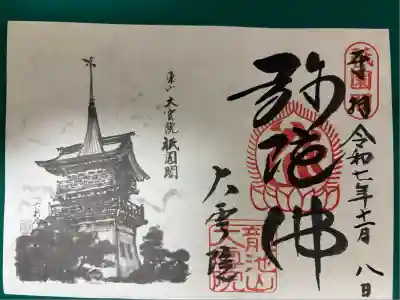 奉拝 令和七年十一月八日
弥陀佛
大雲院
祇園
龍池山
東山 大雲院 祇園閣